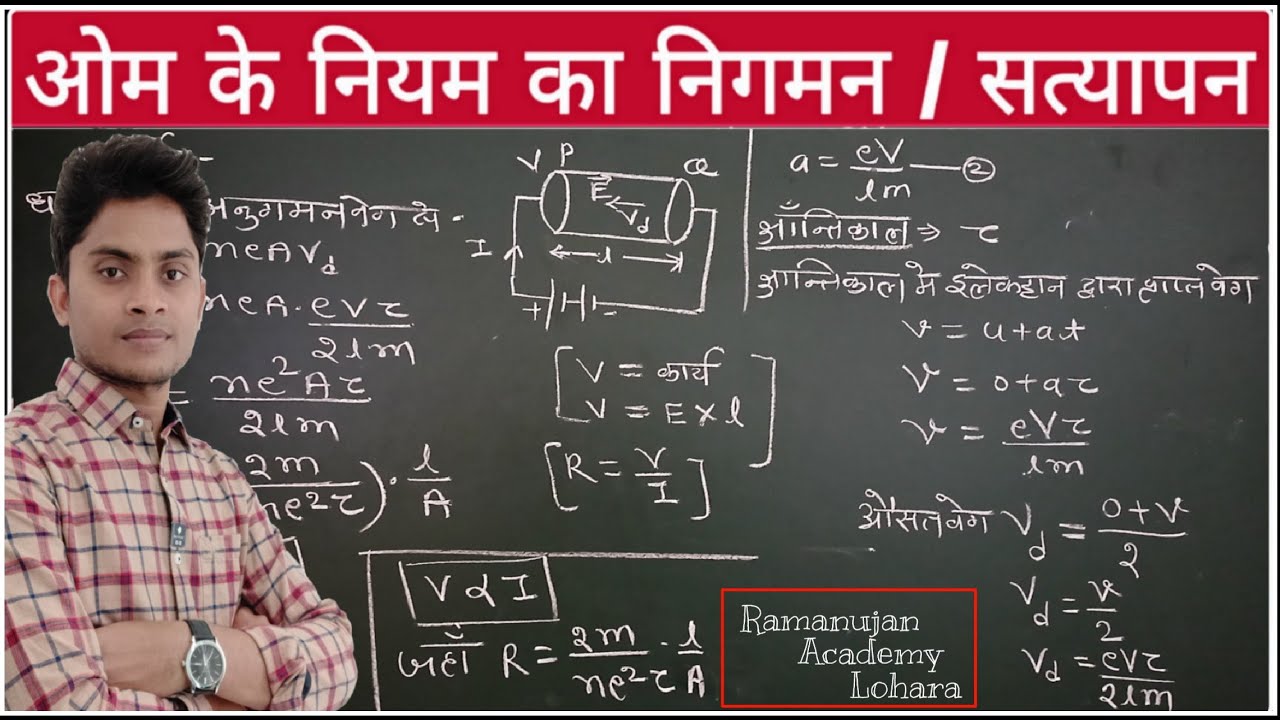 ओम के नियम का निगमन / सत्यापन
अनुगमन वेग से -
neAVd
neA. eVτ / 2lm
= ne²Aτ / 2lm
2m / ne²τ) . l / A
V P Q
E
Vd
I
l
+ -
[V = कार्य
V = E × l]
[R = V / I]
V α I
जहाँ R = 2m / ne²τ . l / A
a = eV / lm — ②
श्रान्तिकाल ⇒ τ
श्रान्तिकाल मे इलेक्ट्रान द्वारा प्राप्त वेग
v = u + at
v = 0 + aτ
v = eVτ / lm
औसत वेग Vd = 0 + v / 2
Vd = v / 2
Vd = eVτ / 2lm
Ramanujan
Academy
Lohara